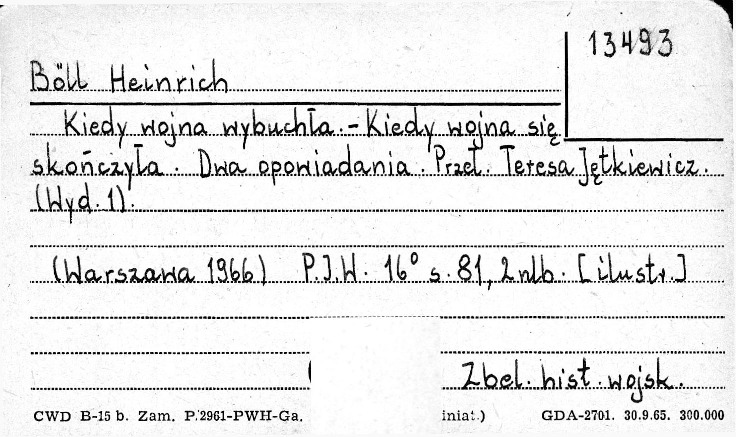 13493
Böll Heinrich
Kiedy wojna wybuchła. - Kiedy wojna się
skończyła. Dwa opowiadania. Przeł. Teresa Jętkiewicz.
(Wyd. 1).
(Warszawa 1966) P.I.W. 16° s. 81, 2 nlb. [ilustr.]
Zbel. hist. wojsk.
CWD B-15 b. Zam. P.2961-PWH-Ga. iniat.) GDA-2701. 30.9.65. 300.000